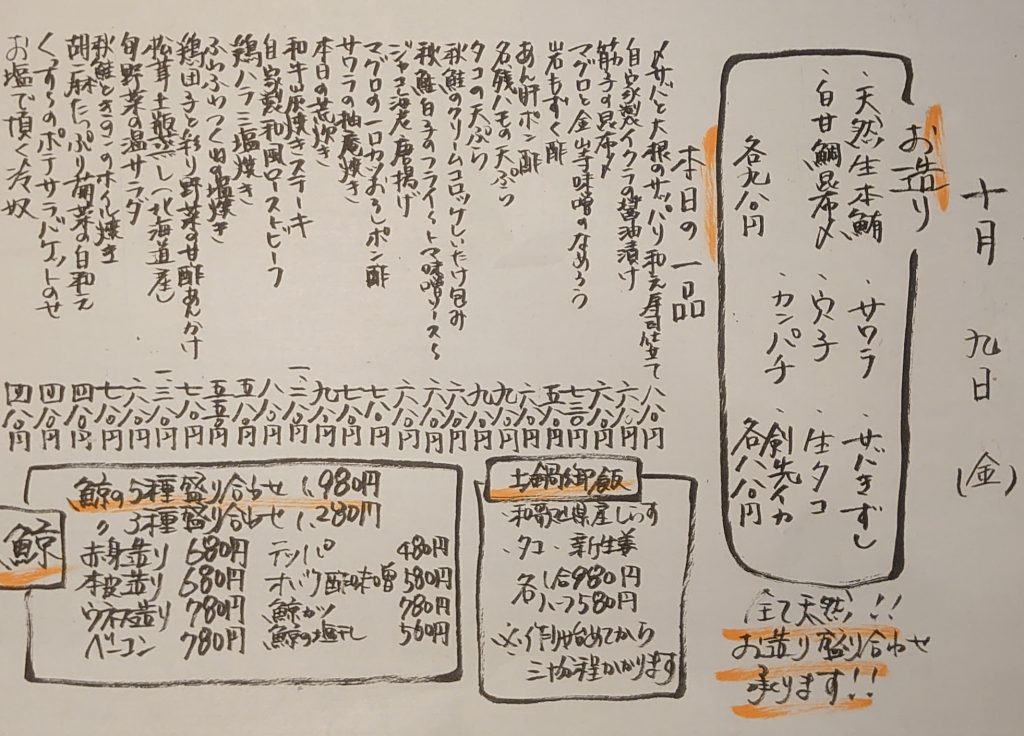 十月九日(金)
お造り
・天然生本鮪
・サワラ
・サバきずし
・白甘鯛昆布〆
・穴子
・生タコ
・カンパチ
・剣先イカ
各九八〇円
各八八〇円
全て天然!!
お造り盛り合わせ
承ります!!
本日の一品
〆サバと大根のサッパリ和え寿司仕立て 八八〇円
自家製イクラの醤油漬け 六八〇円
筋子の昆布〆 六八〇円
マグロと金山寺味噌のなめろう 七三〇円
岩もずく酢 五八〇円
あん肝ポン酢 六八〇円
名残ハモの天ぷら 九八〇円
タコの天ぷら 九八〇円
秋鮭のクリームコロッケしいたけ包み 六八〇円
秋鮭白子のフライ〜トマト味噌ソース〜 六八〇円
ジャコ海老唐揚げ 六八〇円
マグロの一口カツおろしポン酢 七八〇円
サワラの柚庵焼き 七八〇円
本日の荒炊き 九八〇円
和牛山灰焼きステーキ 一、三八〇円
自家製和風ローストビーフ 八八〇円
鶏ハラミ塩焼き 五八〇円
ふわふわつくねの塩焼き 五五〇円
鶏団子と彩り野菜の甘酢あんかけ 七八〇円
松茸土瓶蒸し(北海道産) 一、三八〇円
旬野菜の温サラダ 六八〇円
秋鮭ときのこのホイル焼き 七八〇円
胡麻たっぷり菊菜の白和え 四八〇円
のポテサラバゲットのせ 四八〇円
お塩で頂く冷奴 四八〇円
土鍋御飯
・和歌山県産しらす
・タコ・新生姜
各 一合980円
ハーフ580円
※作り始めてから
三十分程かかります
鯨
鯨の5種盛り合わせ 1,980円
〃 3種盛り合わせ 1,280円
赤身造り 680円
本皮造り 680円
ウネ造り 780円
ベーコン 780円
テッパ 480円
オバケ酢味噌 580円
鯨カツ 780円
鯨の塩干し 560円